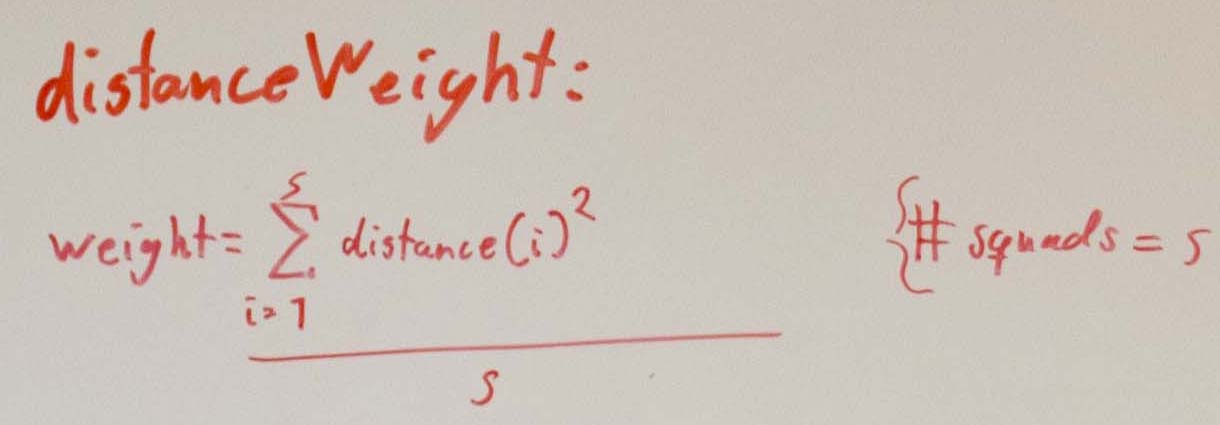 distanceWeight:
weight = ∑ᵢ₌₁ˢ distance(i)² / s
{# squads = s